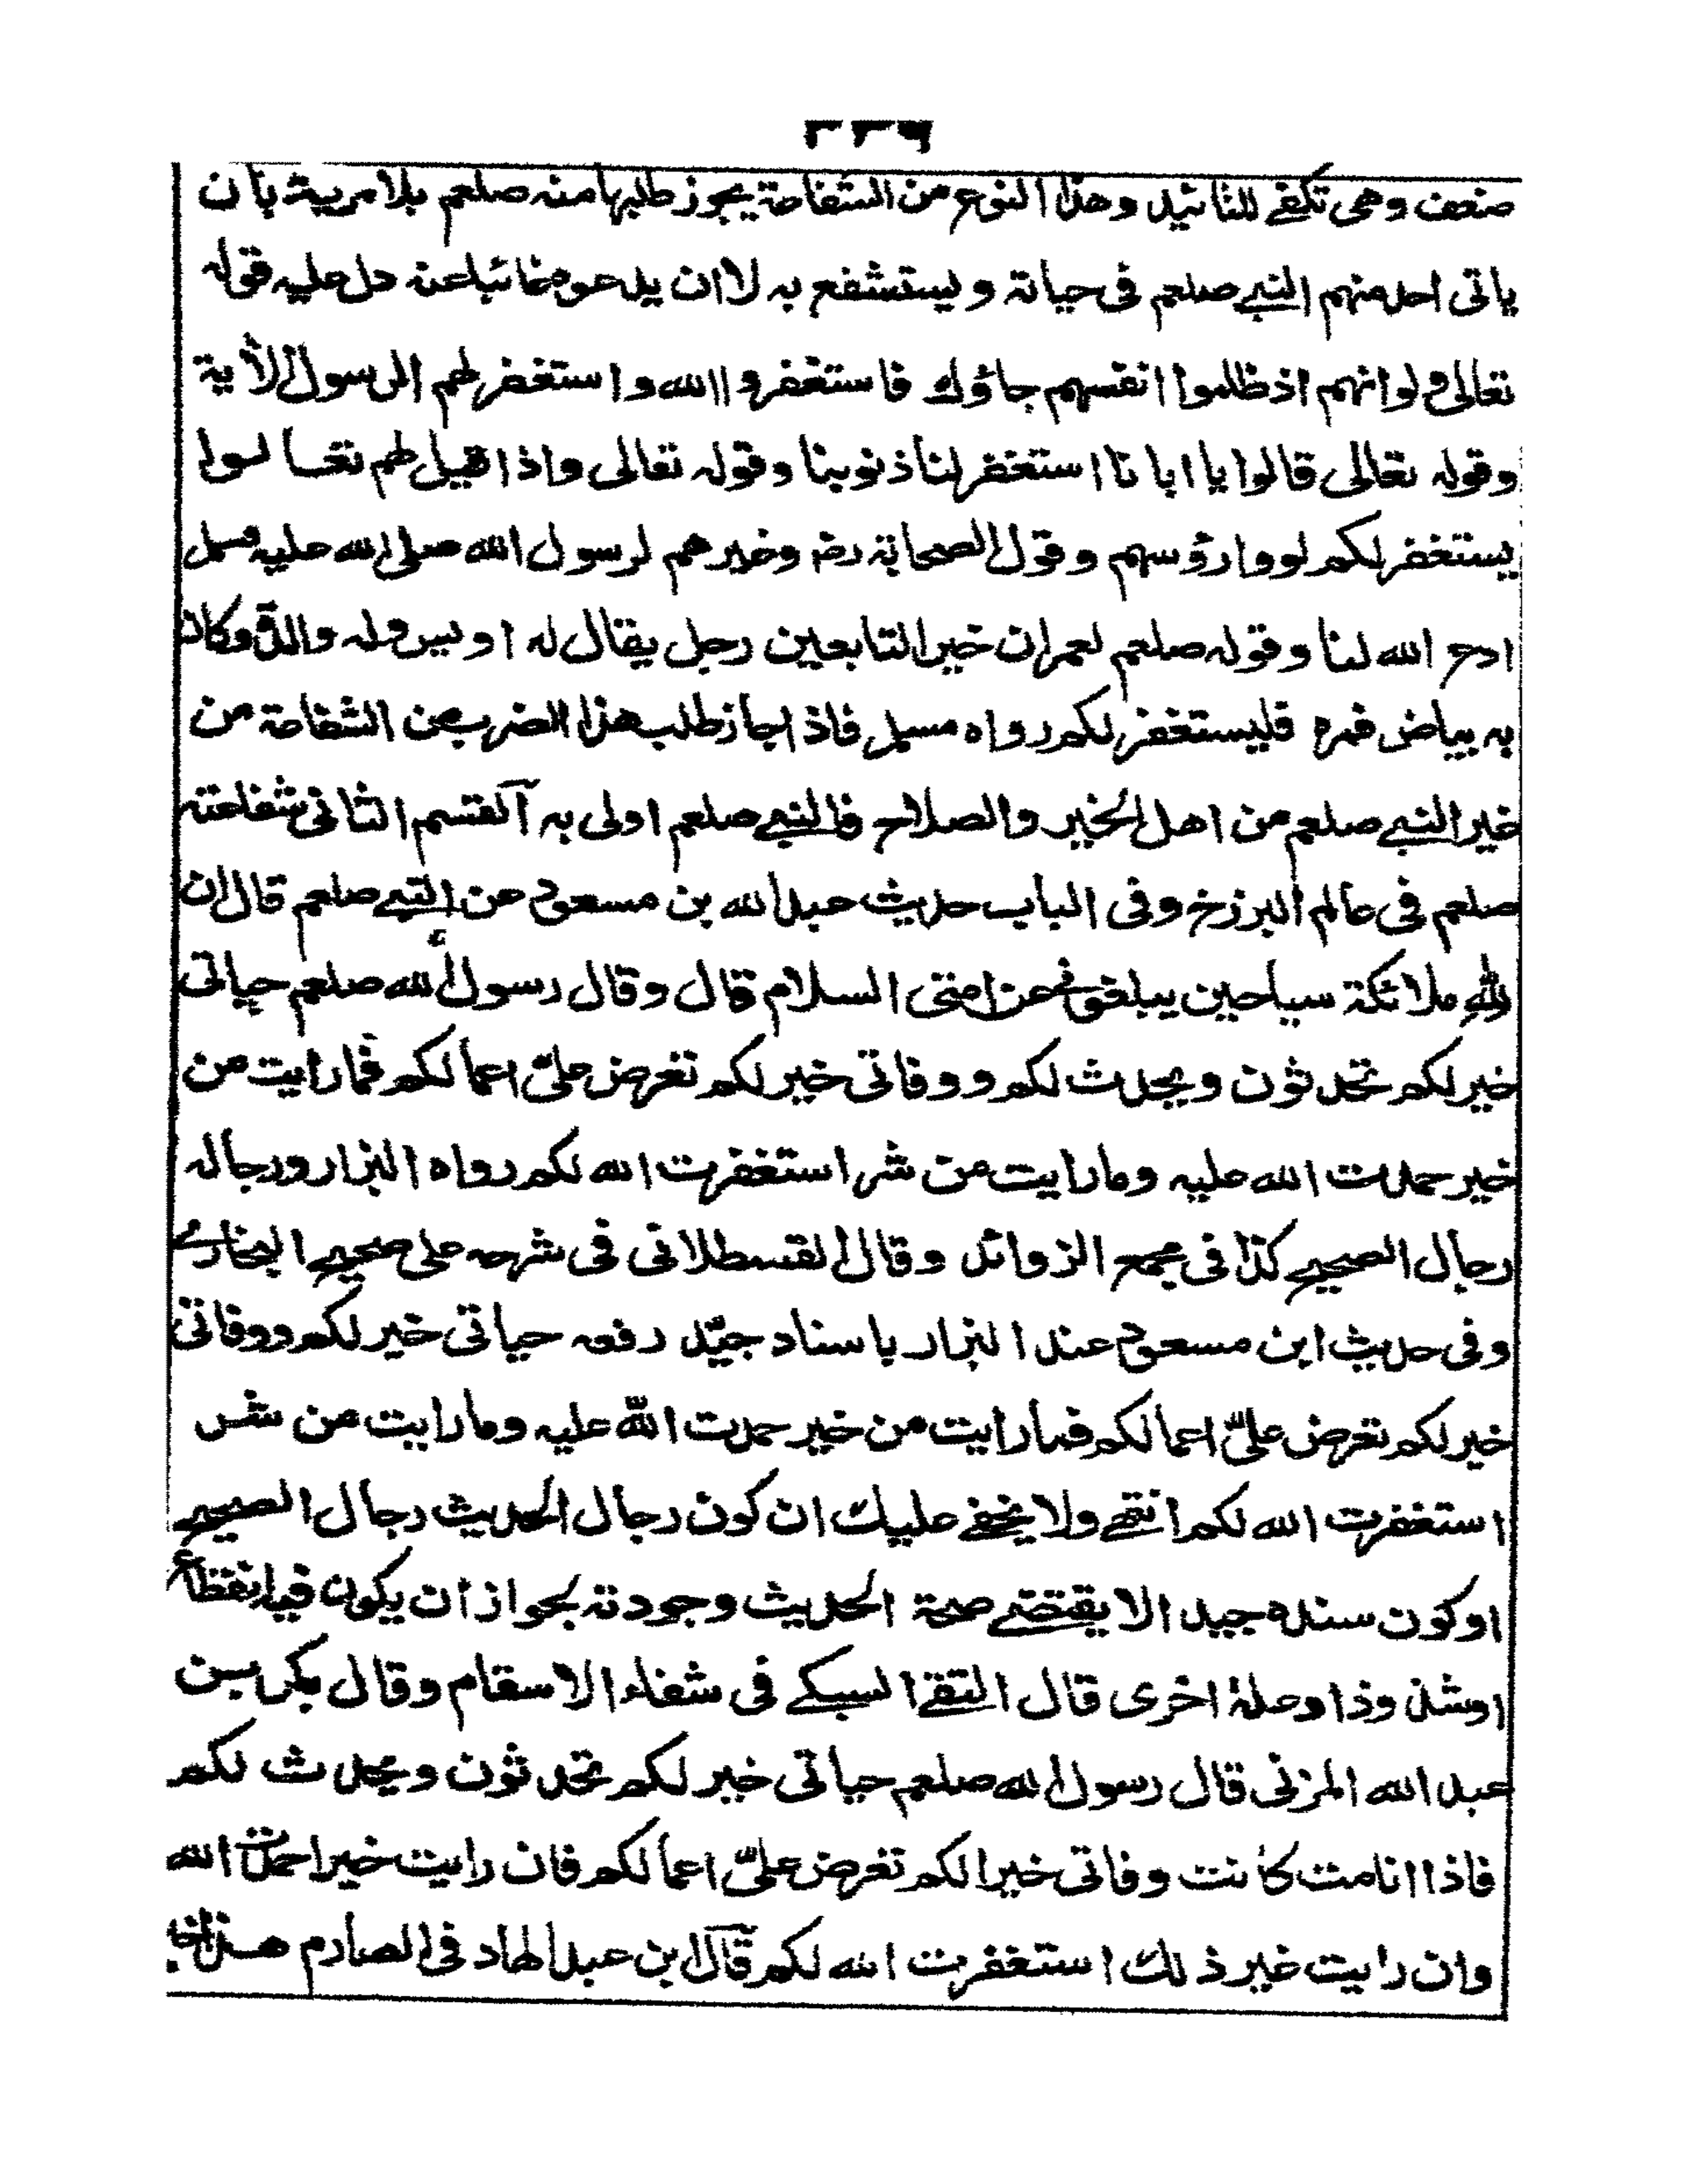 ضعف وهى تكفے للتائيد وهذا النوع من الشفاعة يجوز طلبها منه صلعم بلا مرية بان
ياتى احد منهم النبے صلعم فى حياته ويستشفع به لا ان يدعوه غائبا عنه دل عليه قوله
تعالى ولو انهم اذ ظلموا انفسهم جاؤك فاستغفروا الله واستغفر لهم الرسول الأية
وقوله تعالى قالوا يا ابانا استغفر لنا ذنوبنا وقوله تعالى واذا قيل لهم تعالوا
يستغفر لكم لووا رؤسهم وقول الصحابة رض وغيرهم لرسول الله صلى الله عليه وسلم
ادع الله لنا وقوله صلعم لعمر ان خير التابعين رجل يقال له اويس وله والدة وكان
به بياض فمره فليستغفر لكم رواه مسلم فاذا جاز طلب هذا الضرب من الشفاعة من
غير النبے صلعم من اهل الخير والصلاح فالنبے صلعم اولى به القسم الثانى شفاعته
صلعم فى عالم البرزخ وفى الباب حديث عبد الله بن مسعود عن النبے صلعم قال ان
لله ملائكة سياحين يبلغونے عن امتى السلام قال وقال رسول الله صلعم حياتى
خير لكم تحدثون ويحدث لكم ووفاتى خير لكم تعرض علىّ اعمالكم فما رايت من
خير حمدت الله عليه وما رايت من شر استغفرت الله لكم رواه البزار ورجاله
رجال الصحيح كذا فى مجمع الزوائد وقال القسطلانى فى شرحه على صحيح البخارے
وفى حديث ابن مسعود عند البزار باسناد جيّد رفعه حياتى خير لكم ووفاتى
خير لكم تعرض علىّ اعمالكم فما رايت من خير حمدت الله عليه وما رايت من شر
استغفرت الله لكم انتهے ولا يخفے عليك ان كون رجال الحديث رجال الصحيح
او كون سنده جيدا لا يقتضے صحة الحديث وجودته لجواز ان يكون فيه انقطاع
او شذوذ او علة اخرى قال التقے السبكے فى شفاء الاسقام وقال بكر بن
عبد الله المزنى قال رسول الله صلعم حياتى خير لكم تحدثون ويحدث لكم
فاذا انا مت كانت وفاتى خيرا لكم تعرض علىّ اعمالكم فان رايت خيرا حمدت الله
وان رايت غير ذلك استغفرت الله لكم قال ابن عبد الهاد فى الصارم هذا